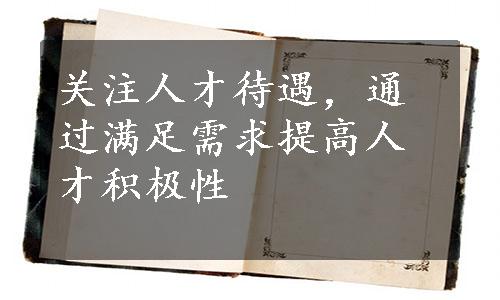 关注人才待遇，通
过满足需求提高人
才积极性